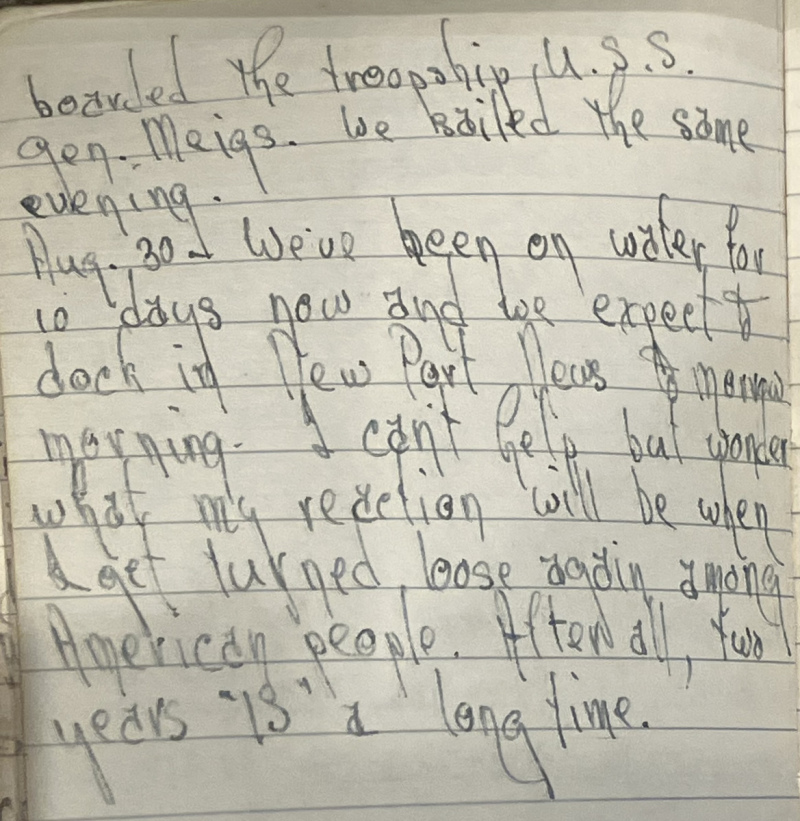 boarded the troopship, U.S.S.
Gen. Meigs. We sailed the same
evening.
Aug. 30 - We've been on water for
10 days now and we expect to
dock in New Port News tomorrow
morning. I can't help but wonder
what my reaction will be when
I get turned loose again among
American people. After all, two
years "IS" a long time.